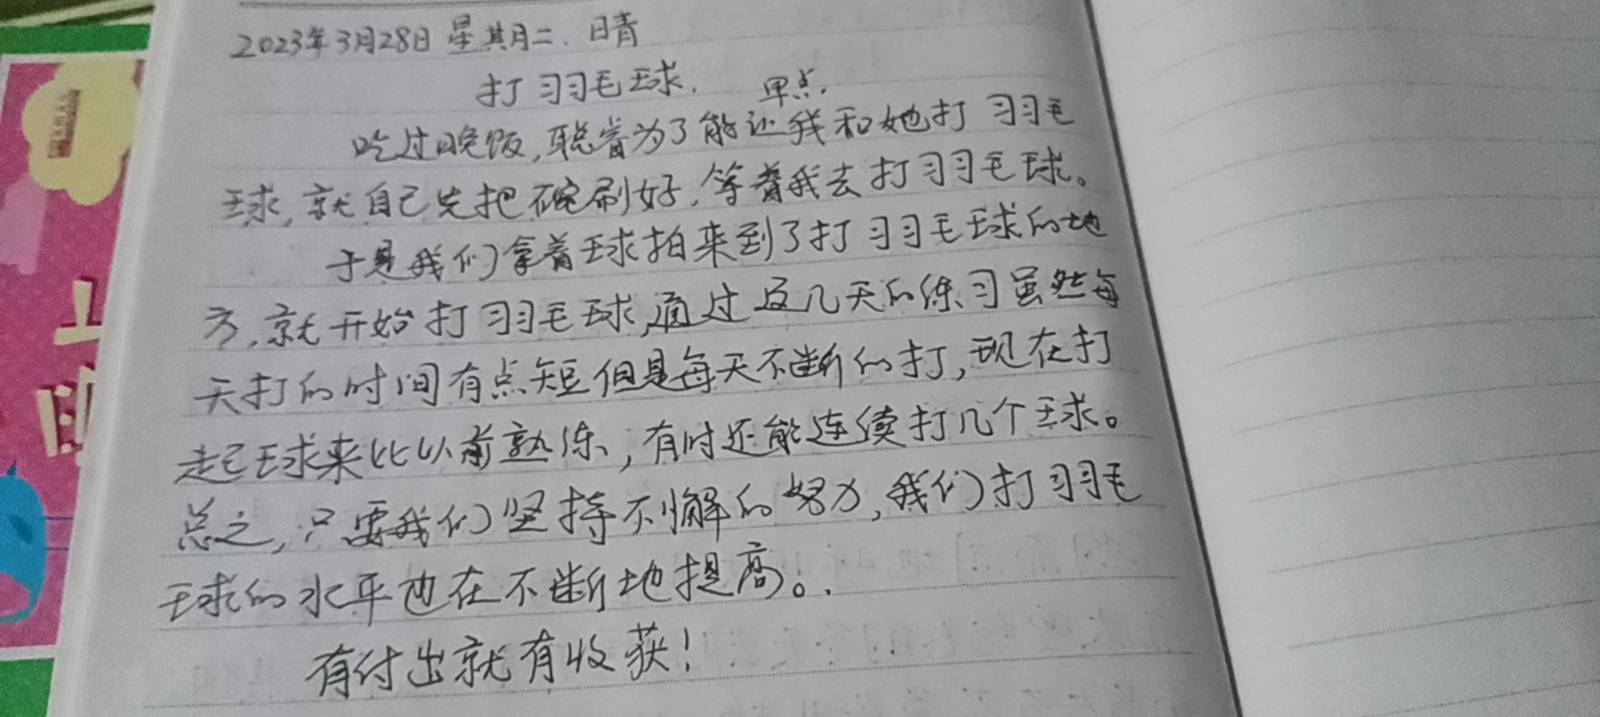 2023年3月28日 星期二. 晴
打羽毛球.
早点.
吃过晚饭,聪睿为了能让我和她打羽毛
球,就自己先把碗刷好,等着我去打羽毛球。
于是我们拿着球拍来到了打羽毛球的地
方,就开始打羽毛球,通过这几天的练习虽然每
天打的时间有点短但是每天不断的打,现在打
起球来比以前熟练,有时还能连续打几个球。
总之,只要我们坚持不懈的努力,我们打羽毛
球的水平也在不断地提高。.
有付出就有收获!